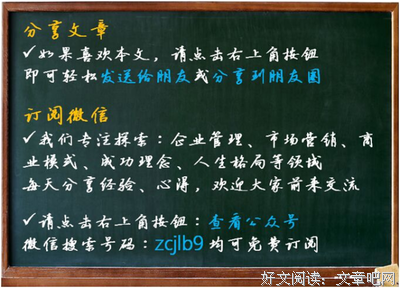 分享文章
✓如果喜欢本文，请点击右上角按钮
即可轻松发送给朋友或分享到朋友圈
订阅微信
✓我们专注探索：企业管理、市场营销、商
业模式、成功理念、人生格局等领域
每天分享经验、心得，欢迎大家前来交流
✓请点击右上角按钮：查看公众号
微信搜索号码：zcjlb9均可免费订阅
好文阅读：文章吧网